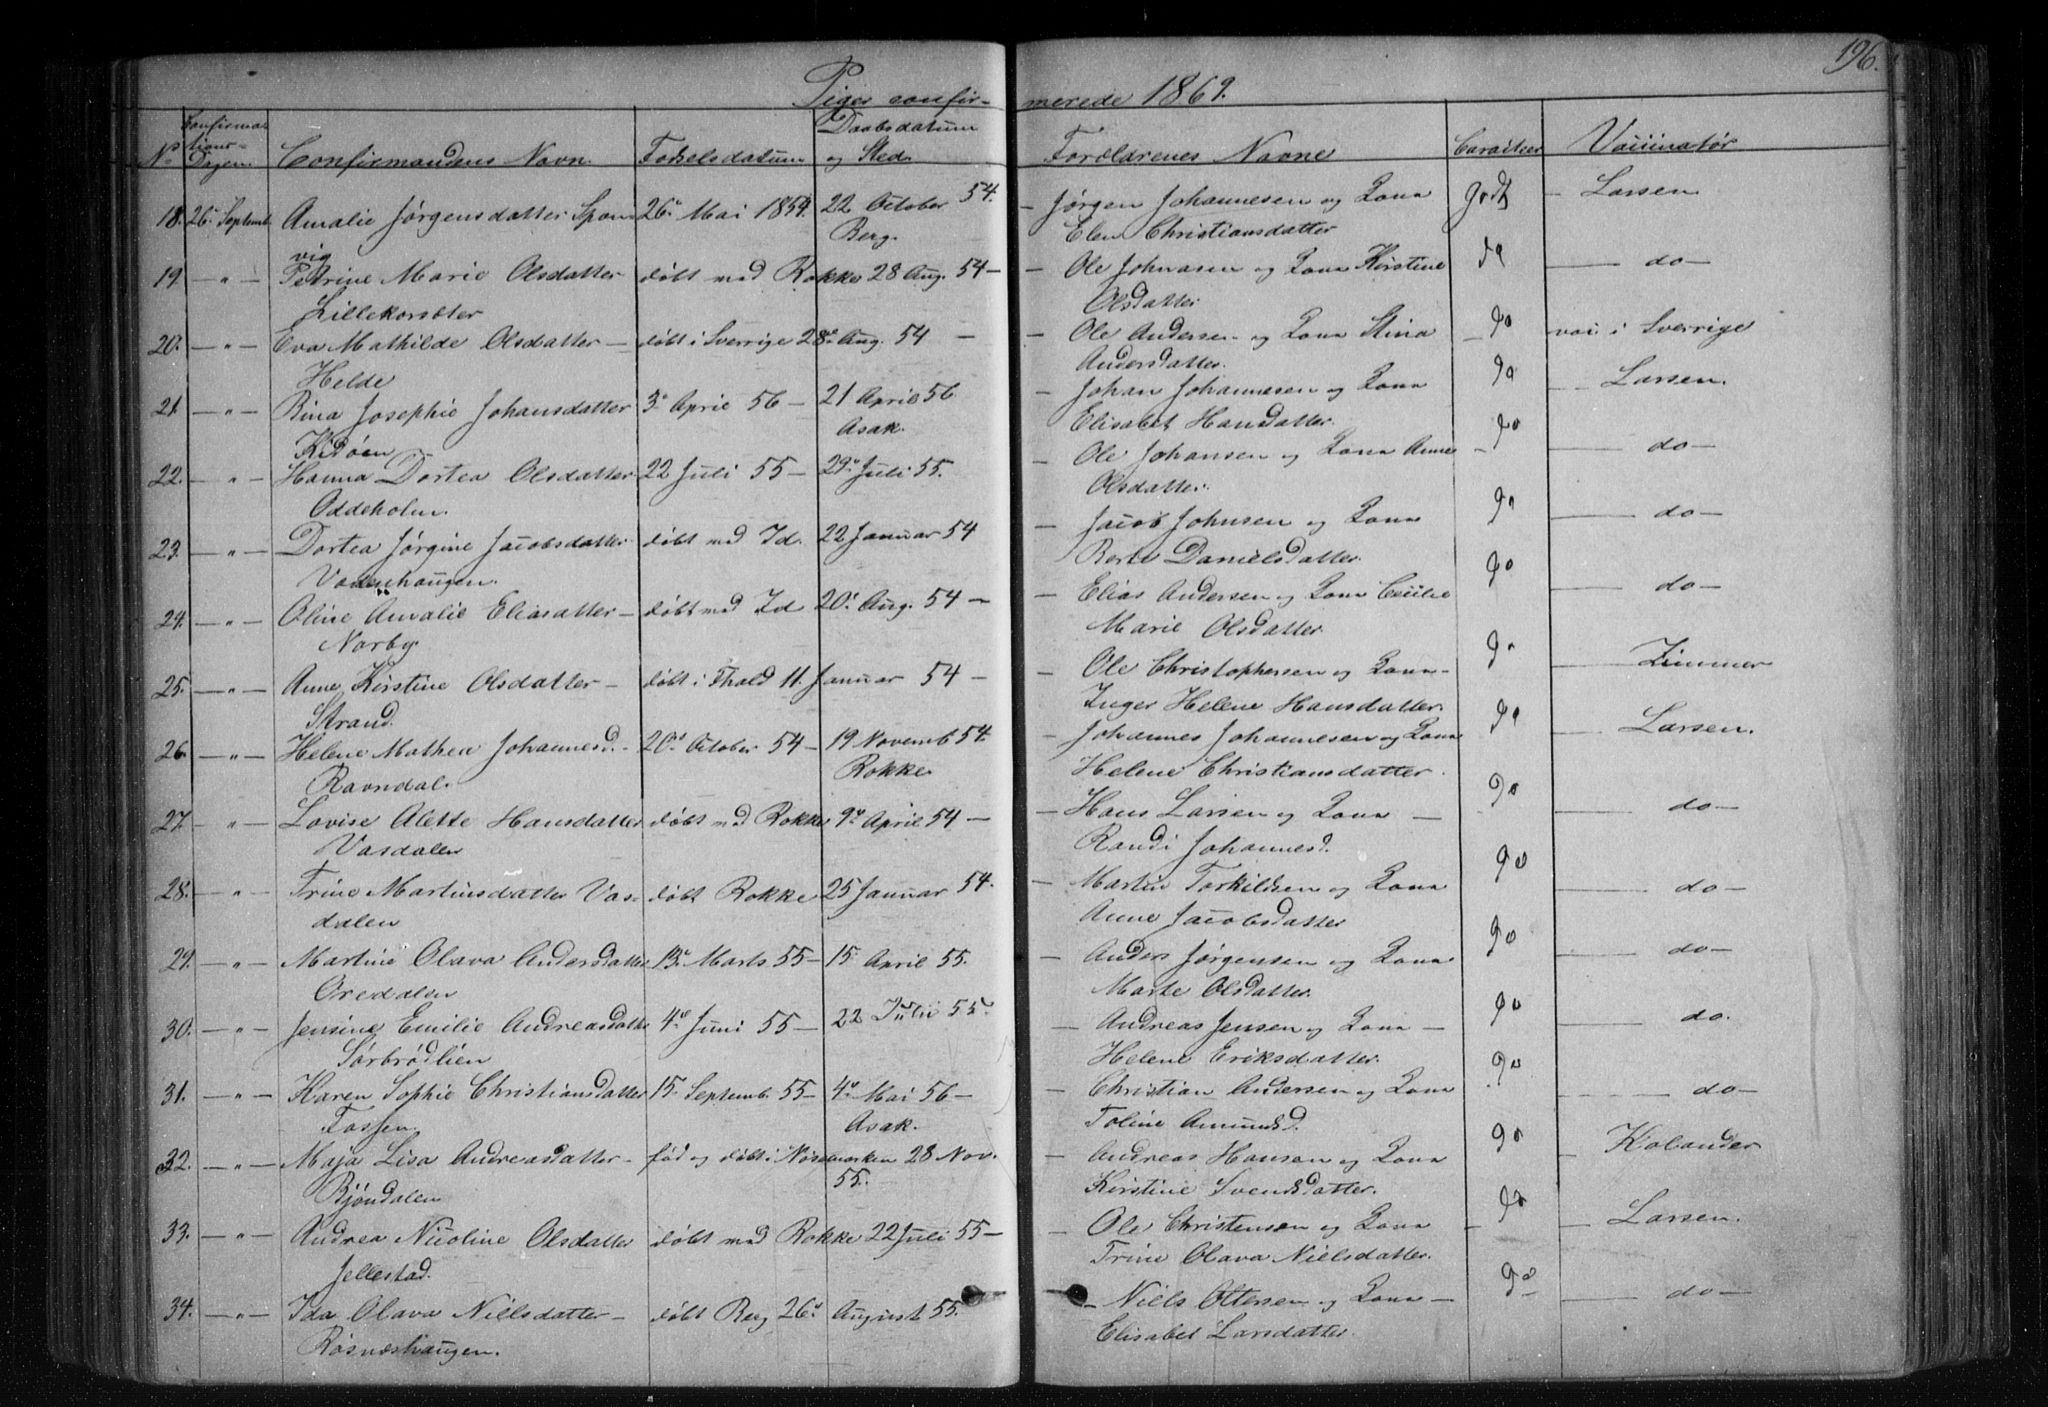 196.
Piger confirmerede 1869.
No Confirmations-Dagen Confirmandens Navn. Fødselsdatum Daabsdatum og Sted. Forældrenes Navne Caracteer Vaccinatør
18. 26de Septemb. Amalie Jørgensdatter Spon- 26de Mai 1854. 22 October 54. – Jørgen Johannesen og Kona godt – Larsen
vig Berg. Elen Christiansdatter
19. – " – Petrine Marie Olsdatter døbt ved Rokke 28 Aug. 54 – – Ole Johnasen og Kona Kirstine do – do –
Lillekorsæter Olsdatter
20. – " – Eva Mathilde Olsdatter – døbt i Sverrige 28de Aug. 54 – – Ole Andersen og Kona Stina – do vac i Sverrige
Helde Andersdatter.
21. – " – Rina Josephie Johansdatter 3de April 56 – 21 April 56 – Johan Johannesen og Kona do – Larsen.
Kidöen Asak. Elisabet Hansdatter.
22. – " – Hanna Dortea Olsdatter 22 Juli 55 – 29de Juli 55. – Ole Johansen og Kona Anne – do – do –
Oddeholen. Olsdatter.
23. – " – Dortea Jørgine Jacobsdatter døbt ved Id. 22 Januar 54 – Jacob Johnsen og Kona do – do –
Vadenhaugen. Berte Danielsdatter.
24. – " – Oline Amalie Eliasdatter – døbt ved Id 20de Aug. 54 – – Elias Andersen og Kona Cecilie do – do –
Norby Marie Olsdatter.
25. – " – Anne Kirstine Olsdatter – døbt i Thold 11. Januar 54 – – Ole Christophersen og Kona – do – Zimmer
Strand. Inger Helene Hansdatter.
26 – " – Helene Mathea Johannesd. – 20de October 54 – 19 Novemb 54. – Johannes Johannesen og Kona do – Larsen.
Ravndal. Rokke. Helene Christiansdatter.
27. – " – Lovise Alette Hansdatter døbt ved Rokke 9de April 54 – – Hans Larsen og Kona – do – do –
Vasdalen Randi Johannesd.
28. – " – Trine Martinsdatter Vas- døbt Rokke 25 Januar 54. – Martin Torkildsen og Kona do – do –
dalen Anne Jacobsdatter
29. – " – Martine Olava Andersdatter 13de Marts 55 – 15 April 55. – Anders Jørgensen og Kona do – do –
Oreddlen Marte Olsdatter.
30. – " – Jensine Emilie Andreasdatter 4de Juni 55 – 22 Julii 55. – Andreas Jensen og Kona – do – do.
Sørbrødlien Helene Eriksdatter.
31. – " – Karen Sophie Christiansdatter 15. Septemb. 55 – 4de Mai 56 – – Christian Andersen og Kona do – do –
Fossen. Asak. Toline Amundsd.
32. – " – Maja Lisa Andreasdatter – fød og døbt i Nøssemarken 28 Nov. 55. – Andreas Hansen og Kona do – Kolander
Bjöndalen Kirstine Svendsdatter.
33. – " – Andrea Nicoline Olsdatter døbt ved Rokke 22 Juli 55 – – Ole Christensen og Kona – do – Larsen.
Jellestad. Trine Olava Nielsdatter.
34. – " – Ida Olava Nielsdatter – døbt Berg 26de August 55. – Niels Ottersen og Kona – do – do –
Røsnæshaugen. Elisabet Larsdatter.